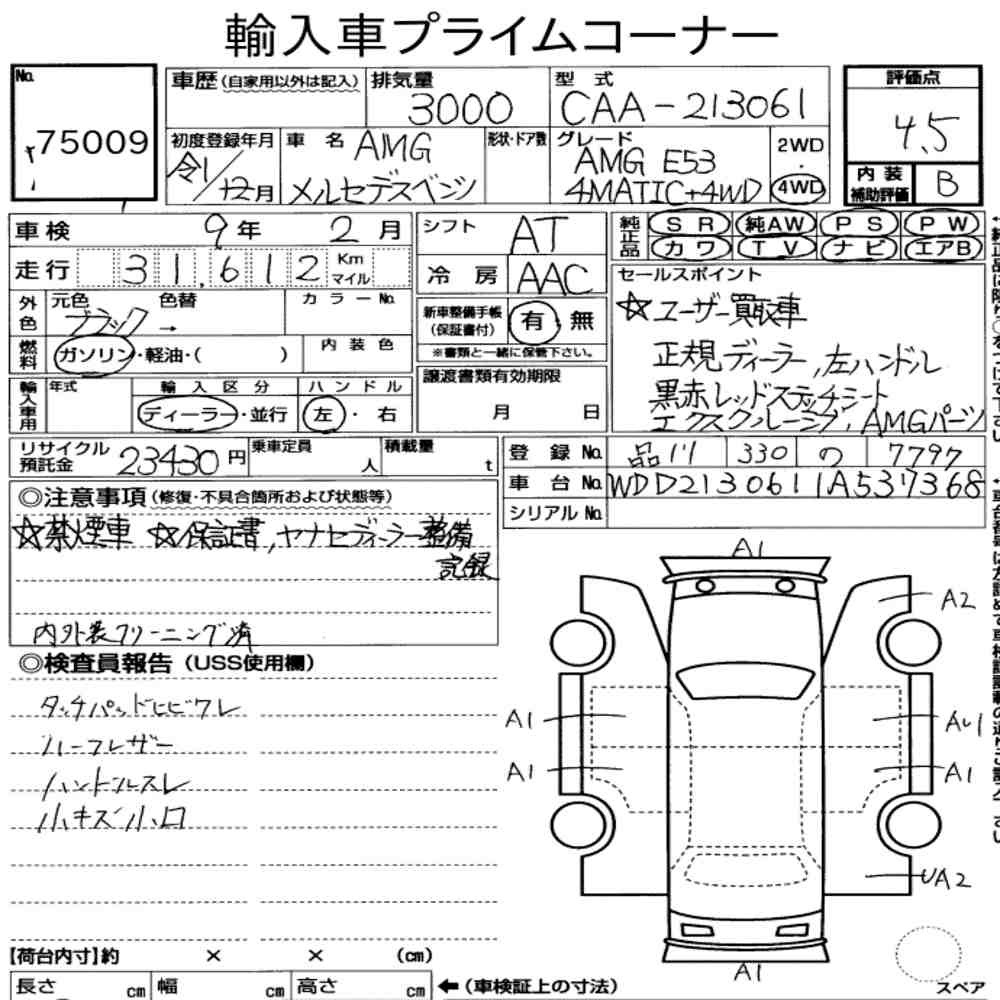 輸入車プライムコーナー
No. 75009
車歴(自家用以外は記入) 排気量 3000 型式 CAA-213061 評価点 4.5
初度登録年月 令1/12月 車名 AMG メルセデスベンツ 形状・ドア数 グレード AMG E53 4MATIC+4WD 2WD・4WD 内装補助評価 B
車検 9年 2月 シフト AT 純正品 SR 純AW PS PW
走行 31,612 Km マイル 冷房 AAC カワ TV ナビ エアB
外色 元色 ブラック 色替 → カラーNo. 新車整備手帳(保証書付) 有・無
※書類と一緒に保管下さい。
燃料 ガソリン・軽油・( ) 内装色
セールスポイント
☆ユーザー買取車
正規ディーラー,左ハンドル
黒赤レッドステッチシート
エクスクルーシブ,AMGパーツ
輸入車用 年式 輸入区分 ディーラー・並行 ハンドル 左・右 譲渡書類有効期限 月 日
リサイクル預託金 23430円 乗車定員 人 積載量 t
登録No. 品川 330 の 7797
車台No. WDD2130611A537368
シリアルNo.
◎注意事項(修復・不具合箇所および状態等)
☆禁煙車 ☆保証書,ヤナセディーラー整備
記録
内外装クリーニング済
◎検査員報告(USS使用欄)
タッチパッドヒビワレ
ハーフレザー
ハンドルスレ
小キズ小凹
A1
A2
A1 AU1
A1 A1
UA2
A1
スペア
【荷台内寸】約 × × (cm)
長さ cm 幅 cm 高さ cm ←(車検証上の寸法)